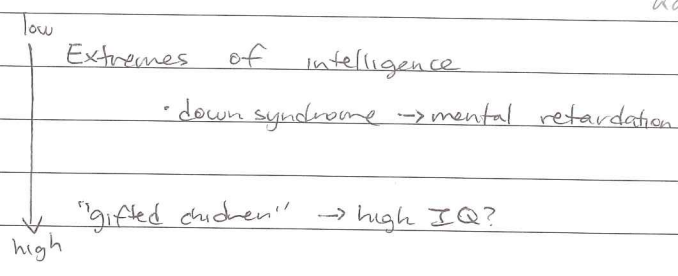 low
Extremes of intelligence
· down syndrome → mental retardation
"gifted chidren" → high IQ?
high